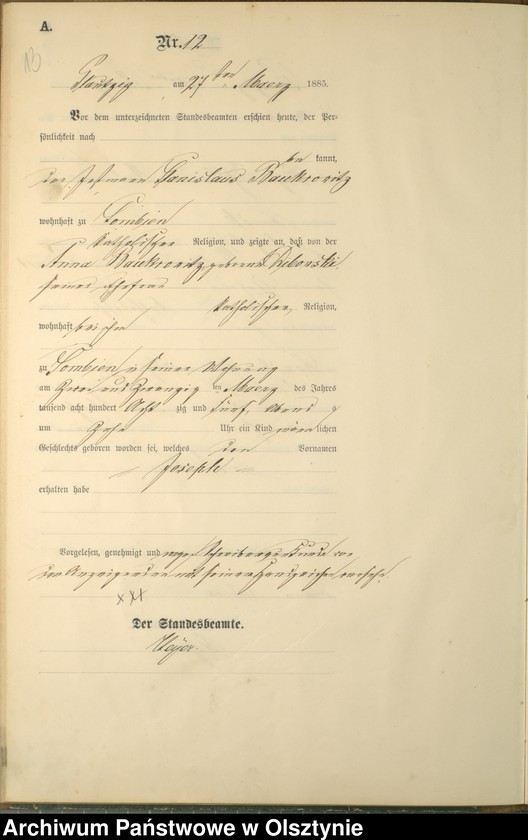 A.
13
Nr. 12
Plautzig am 27ten Maerz 1885.
Vor dem unterzeichneten Standesbeamten erschien heute, der Per-
sönlichkeit nach
be kannt,
der Stanislaus
wohnhaft zu
katholischer Religion, und zeigte an, daß von der
Anna geborene
seiner Ehefrau
katholischer Religion,
wohnhaft bei ihm
zu in seiner Wohnung
am Zwei und Zwanzig ten Maerz des Jahres
tausend acht hundert Acht zig und fünf, Abends
um Uhr ein Kind männ lichen
Geschlechts geboren worden sei, welches den Vornamen
Joseph
erhalten habe
Vorgelesen, genehmigt und wegen Schreibensunkunde von
dem Anzeigenden mit seinem Handzeichen versehen.
xxx
Der Standesbeamte.
Archiwum Państwowe w Olsztynie